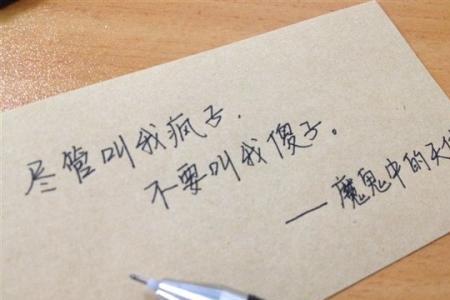 尽管叫我疯子.
不要叫我傻子。
——魔鬼中的天